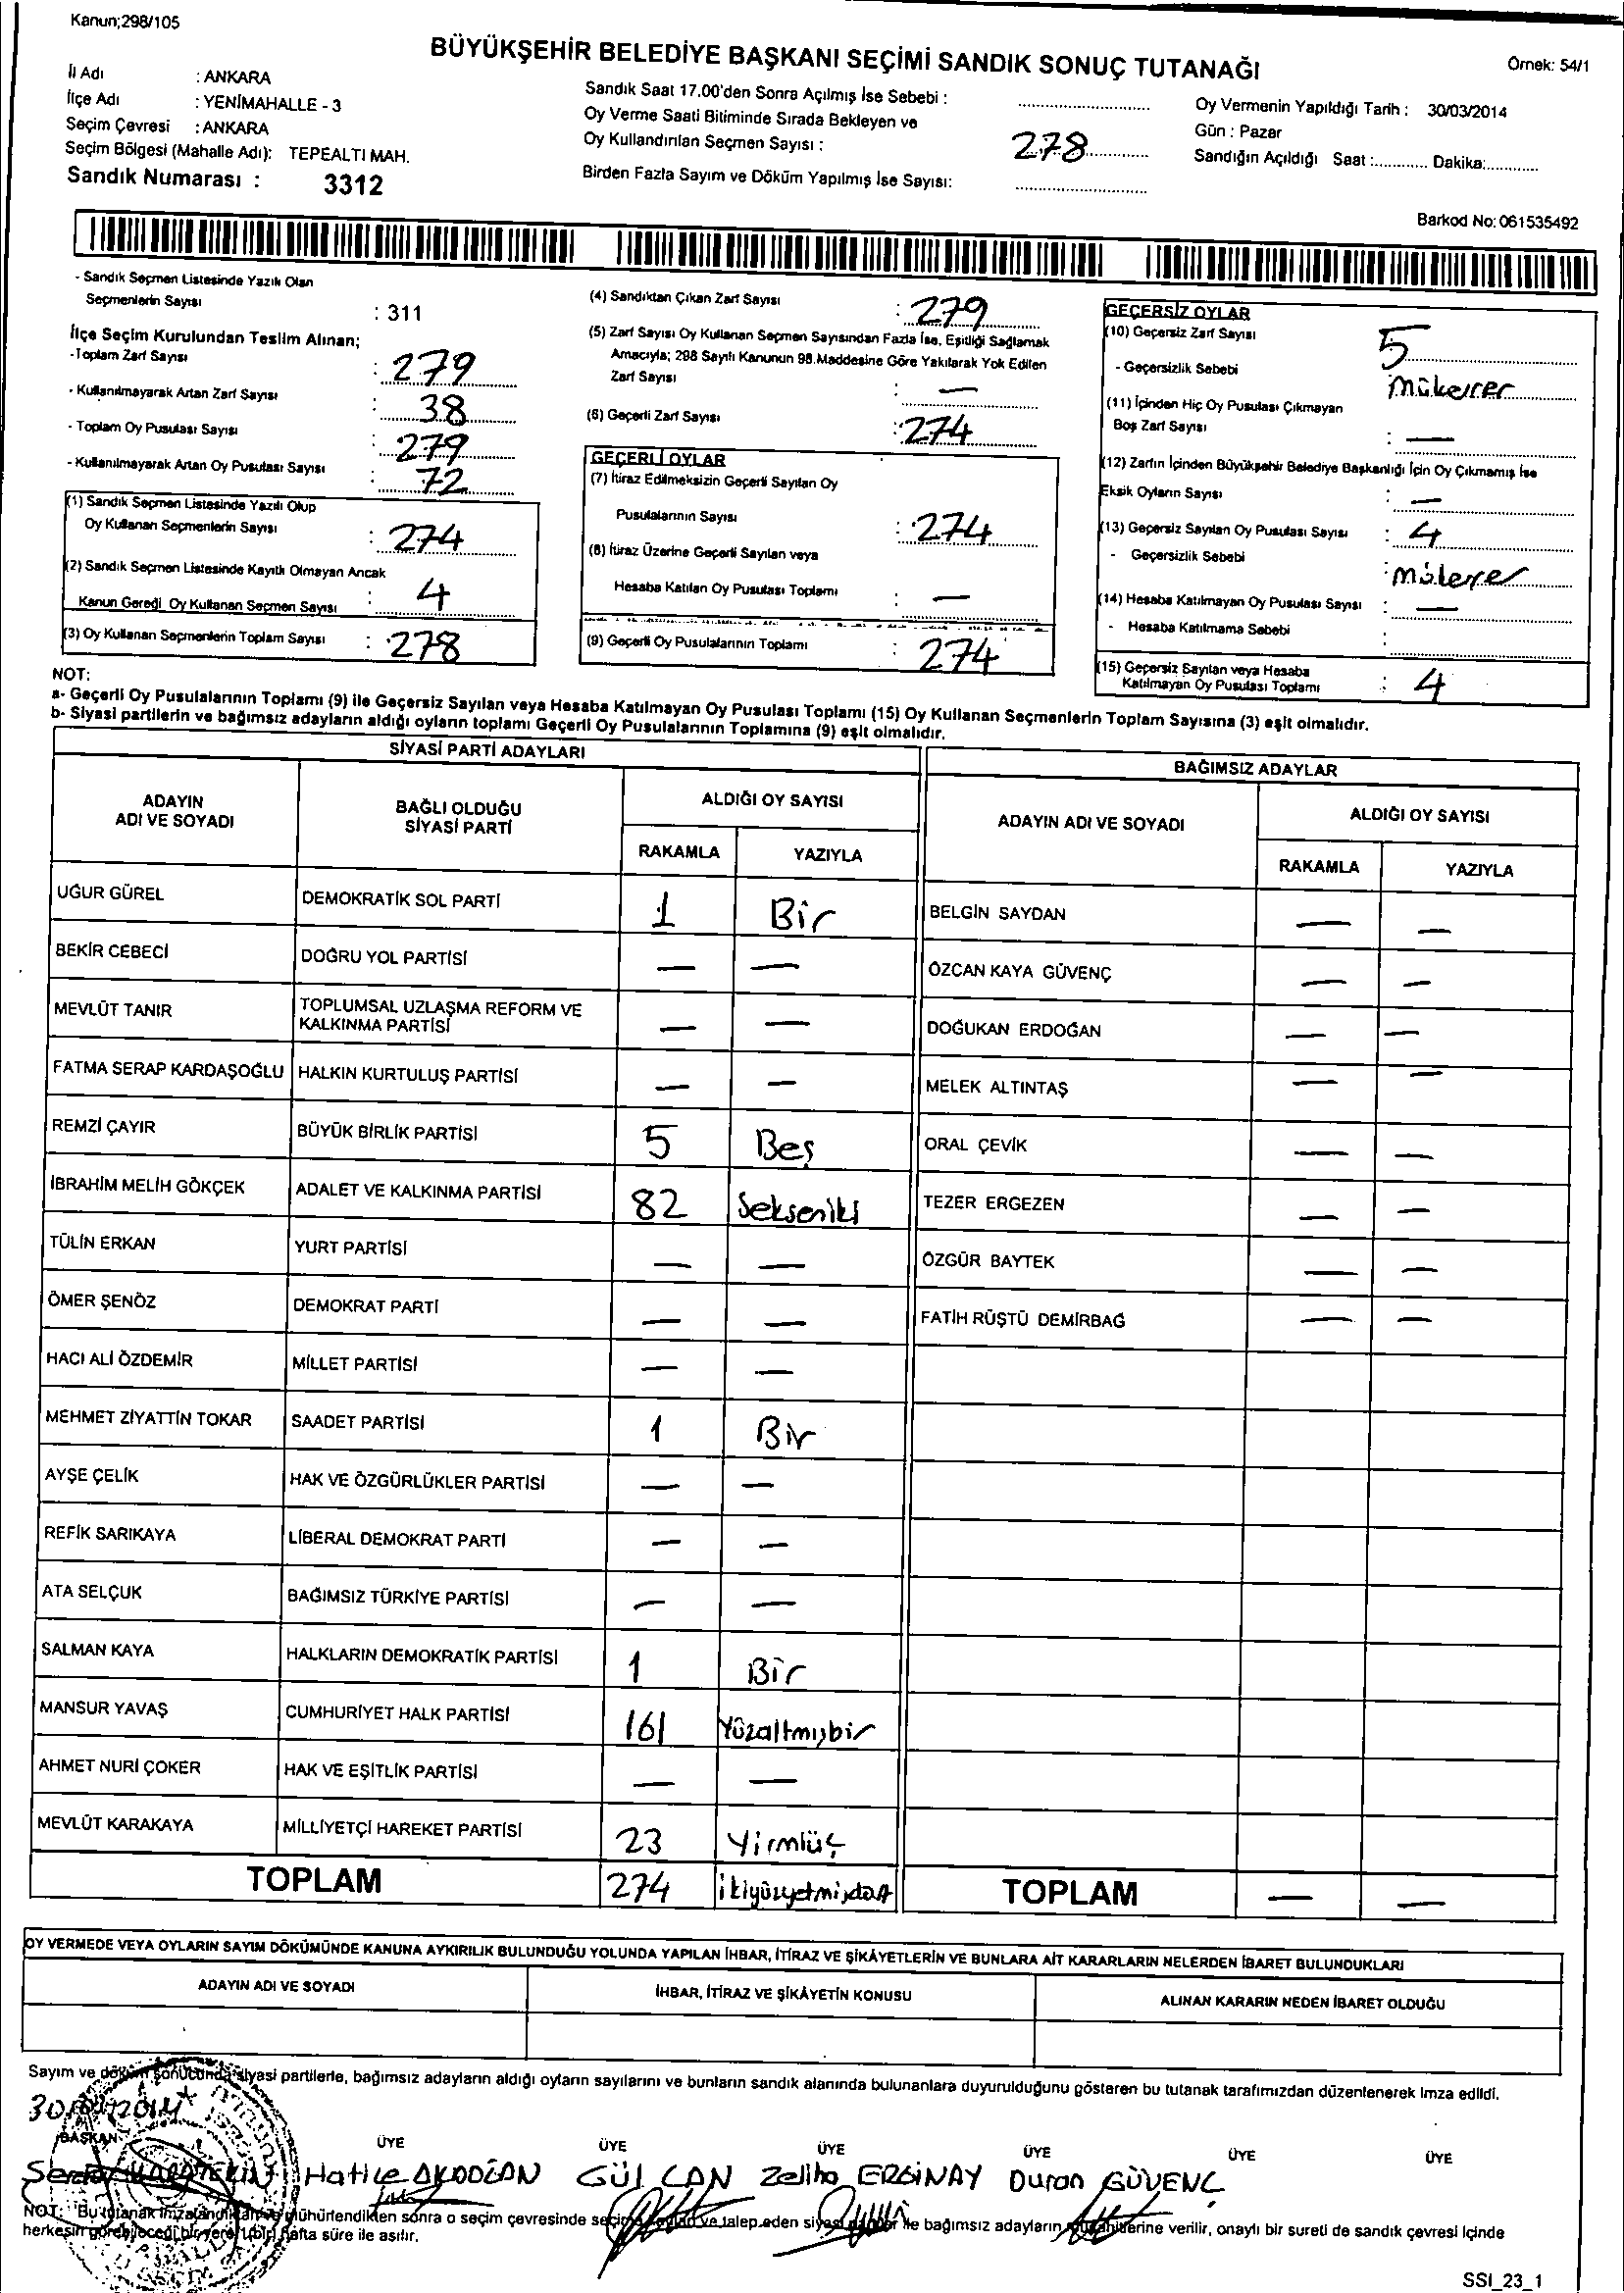 Kanun;298/105
BÜYÜKŞEHİR BELEDİYE BAŞKANI SEÇİMİ SANDIK SONUÇ TUTANAĞI
Örnek: 54/1
İl Adı : ANKARA
İlçe Adı : YENİMAHALLE - 3
Seçim Çevresi : ANKARA
Seçim Bölgesi (Mahalle Adı): TEPEALTI MAH.
Sandık Numarası : 3312
Sandık Saat 17.00'den Sonra Açılmış İse Sebebi :
Oy Verme Saati Bitiminde Sırada Bekleyen ve
Oy Kullandırılan Seçmen Sayısı : 278
Birden Fazla Sayım ve Döküm Yapılmış İse Sayısı:
Oy Vermenin Yapıldığı Tarih : 30/03/2014
Gün : Pazar
Sandığın Açıldığı Saat :............ Dakika:.............
Barkod No: 061535492
- Sandık Seçmen Listesinde Yazılı Olan
Seçmenlerin Sayısı : 311
İlçe Seçim Kurulundan Teslim Alınan;
-Toplam Zarf Sayısı : 279
- Kullanılmayarak Artan Zarf Sayısı : 38
- Toplam Oy Pusulası Sayısı : 279
- Kullanılmayarak Artan Oy Pusulası Sayısı : 72
(1) Sandık Seçmen Listesinde Yazılı Olup
Oy Kullanan Seçmenlerin Sayısı : 274
(2) Sandık Seçmen Listesinde Kayıtlı Olmayan Ancak
Kanun Gereği Oy Kullanan Seçmen Sayısı : 4
(3) Oy Kullanan Seçmenlerin Toplam Sayısı : 278
(4) Sandıktan Çıkan Zarf Sayısı : 279
(5) Zarf Sayısı Oy Kullanan Seçmen Sayısından Fazla İse, Eşitliği Sağlamak
Amacıyla; 298 Sayılı Kanunun 98.Maddesine Göre Yakılarak Yok Edilen
Zarf Sayısı : —
(6) Geçerli Zarf Sayısı : 274
GEÇERLİ OYLAR
(7) İtiraz Edilmeksizin Geçerli Sayılan Oy
Pusulalarının Sayısı : 274
(8) İtiraz Üzerine Geçerli Sayılan veya
Hesaba Katılan Oy Pusulası Toplamı : —
(9) Geçerli Oy Pusulalarının Toplamı : 274
GEÇERSİZ OYLAR
(10) Geçersiz Zarf Sayısı 5
- Geçersizlik Sebebi mükerrer
(11) İçinden Hiç Oy Pusulası Çıkmayan
Boş Zarf Sayısı : —
(12) Zarfın İçinden Büyükşehir Belediye Başkanlığı İçin Oy Çıkmamış İse
Eksik Oyların Sayısı : —
(13) Geçersiz Sayılan Oy Pusulası Sayısı : 4
- Geçersizlik Sebebi :
(14) Hesaba Katılmayan Oy Pusulası Sayısı : —
- Hesaba Katılmama Sebebi :
(15) Geçersiz Sayılan veya Hesaba
Katılmayan Oy Pusulası Toplamı : 4
NOT:
a- Geçerli Oy Pusulalarının Toplamı (9) ile Geçersiz Sayılan veya Hesaba Katılmayan Oy Pusulası Toplamı (15) Oy Kullanan Seçmenlerin Toplam Sayısına (3) eşit olmalıdır.
b- Siyasi partilerin ve bağımsız adayların aldığı oyların toplamı Geçerli Oy Pusulalarının Toplamına (9) eşit olmalıdır.
SİYASİ PARTİ ADAYLARI
ADAYIN ADI VE SOYADI BAĞLI OLDUĞU SİYASİ PARTİ ALDIĞI OY SAYISI
RAKAMLA YAZIYLA
UĞUR GÜREL DEMOKRATİK SOL PARTİ 1 Bir
BEKİR CEBECİ DOĞRU YOL PARTİSİ — —
MEVLÜT TANIR TOPLUMSAL UZLAŞMA REFORM VE KALKINMA PARTİSİ — —
FATMA SERAP KARDAŞOĞLU HALKIN KURTULUŞ PARTİSİ — —
REMZİ ÇAYIR BÜYÜK BİRLİK PARTİSİ 5 Beş
İBRAHİM MELİH GÖKÇEK ADALET VE KALKINMA PARTİSİ 82 Sekseniki
TÜLİN ERKAN YURT PARTİSİ — —
ÖMER ŞENÖZ DEMOKRAT PARTİ — —
HACI ALİ ÖZDEMİR MİLLET PARTİSİ — —
MEHMET ZİYATTİN TOKAR SAADET PARTİSİ 1 Bir
AYŞE ÇELİK HAK VE ÖZGÜRLÜKLER PARTİSİ — —
REFİK SARIKAYA LİBERAL DEMOKRAT PARTİ — —
ATA SELÇUK BAĞIMSIZ TÜRKİYE PARTİSİ — —
SALMAN KAYA HALKLARIN DEMOKRATİK PARTİSİ 1 Bir
MANSUR YAVAŞ CUMHURİYET HALK PARTİSİ 161 Yüzaltmışbir
AHMET NURİ ÇOKER HAK VE EŞİTLİK PARTİSİ — —
MEVLÜT KARAKAYA MİLLİYETÇİ HAREKET PARTİSİ 23 Yirmiüç
TOPLAM 274 ikiyüzyetmişdört
BAĞIMSIZ ADAYLAR
ADAYIN ADI VE SOYADI ALDIĞI OY SAYISI
RAKAMLA YAZIYLA
BELGİN SAYDAN — —
ÖZCAN KAYA GÜVENÇ — —
DOĞUKAN ERDOĞAN — —
MELEK ALTINTAŞ — —
ORAL ÇEVİK — —
TEZER ERGEZEN — —
ÖZGÜR BAYTEK — —
FATİH RÜŞTÜ DEMİRBAĞ — —
TOPLAM — —
OY VERMEDE VEYA OYLARIN SAYIM DÖKÜMÜNDE KANUNA AYKIRILIK BULUNDUĞU YOLUNDA YAPILAN İHBAR, İTİRAZ VE ŞİKÂYETLERİN VE BUNLARA AİT KARARLARIN NELERDEN İBARET BULUNDUKLARI
ADAYIN ADI VE SOYADI İHBAR, İTİRAZ VE ŞİKÂYETİN KONUSU ALINAN KARARIN NEDEN İBARET OLDUĞU
Sayım ve döküm sonucunda siyasi partilerle, bağımsız adayların aldığı oyların sayılarını ve bunların sandık alanında bulunanlara duyurulduğunu gösteren bu tutanak tarafımızdan düzenlenerek imza edildi.
BAŞKAN ÜYE ÜYE ÜYE ÜYE ÜYE ÜYE
Hatice AKDOĞAN GÜL CAN Zeliha ERGİNAY Duran GÜVENÇ
NOT: Bu tutanak imzalandıktan ve mühürlendikten sonra o seçim çevresinde seçime katılan ve talep eden siyasi partiler ile bağımsız adayların müşahitlerine verilir, onaylı bir sureti de sandık çevresi içinde
herkesin görebileceği bir yere bir hafta süre ile asılır.
SSI_23_1